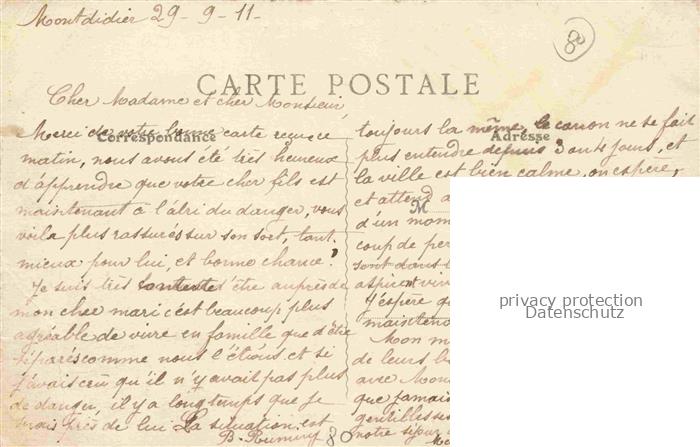 Montdidier 29-9-11-
80
CARTE POSTALE
Cher Madame et cher Monsieur
Correspondance
Adresse
M
Merci de votre bonne carte reçue ce
matin, nous avons été très heureux
d'apprendre que votre cher fils est
maintenant à l'abri du danger, vous
voila plus rassurés sur son sort, tant
mieux pour lui, et bonne chance!
Je suis très contente d'être auprès de
mon cher mari c'est beaucoup plus
agréable de vivre en famille que d'être
séparés comme nous l'étions et si
j'avais cru qu'il n'y avait pas plus
de danger, il y a longtemps que je
serais près de lui La situation est
B. Rumury 80
toujours la même, le canon ne se fait
plus entendre depuis 3 ou 4 jours, et
la ville est bien calme, on espère,
et attend
d'un mom
coup de per
sont dans l
aspirent viv
J'espère qu
maintena
Mon m
de leurs b
avec Mons
que jamais
gentilles se
notre séjour
privacy protection
Datenschutz